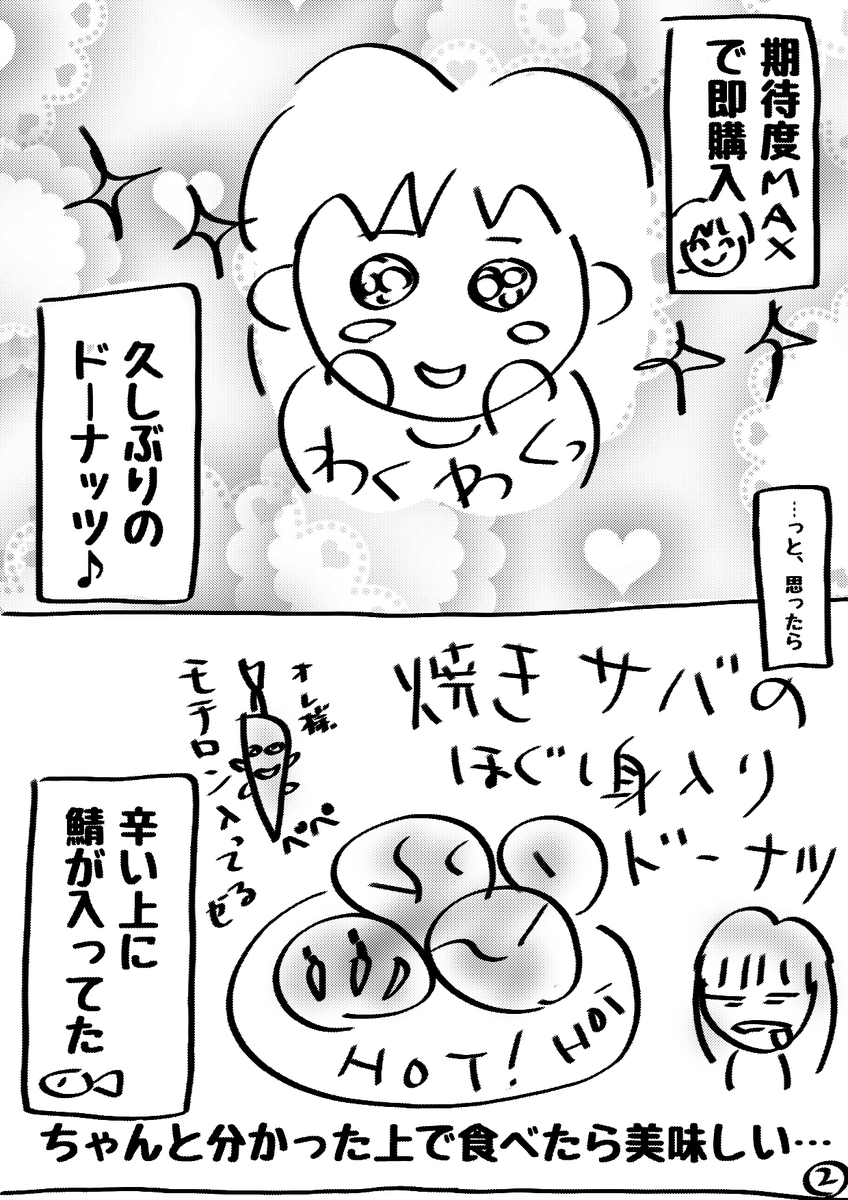 期待度MAX
で即購入
わくわくっ
久しぶりの
ドーナッツ♪
…っと、思ったら
焼きサバの
ほぐし身入り
ドーナツ
オレ様
モチロン入ってるぜ
ペペ
辛い上に
鯖が入ってた
HOT! HOT
ちゃんと分かった上で食べたら美味しい…
2